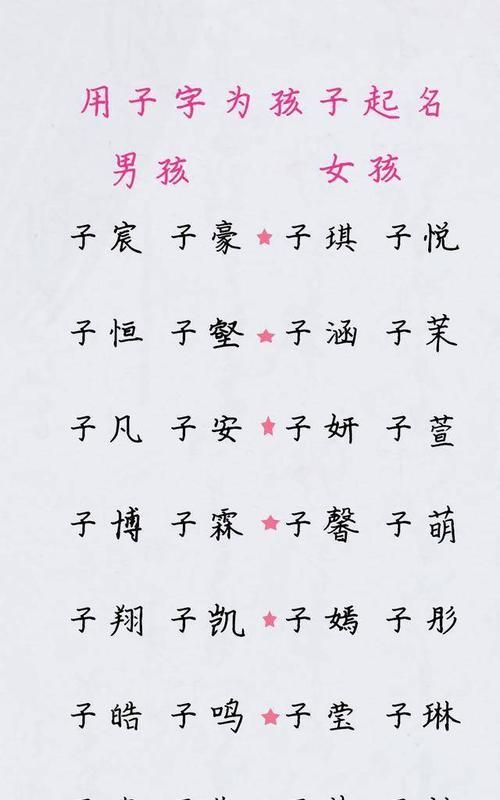 用子字为孩子起名
男孩 女孩
子宸 子豪 子琪 子悦
子恒 子壑 子涵 子茉
子凡 子安 子妍 子萱
子博 子霖 子馨 子萌
子翔 子凯 子嫣 子彤
子皓 子鸣 子莹 子琳